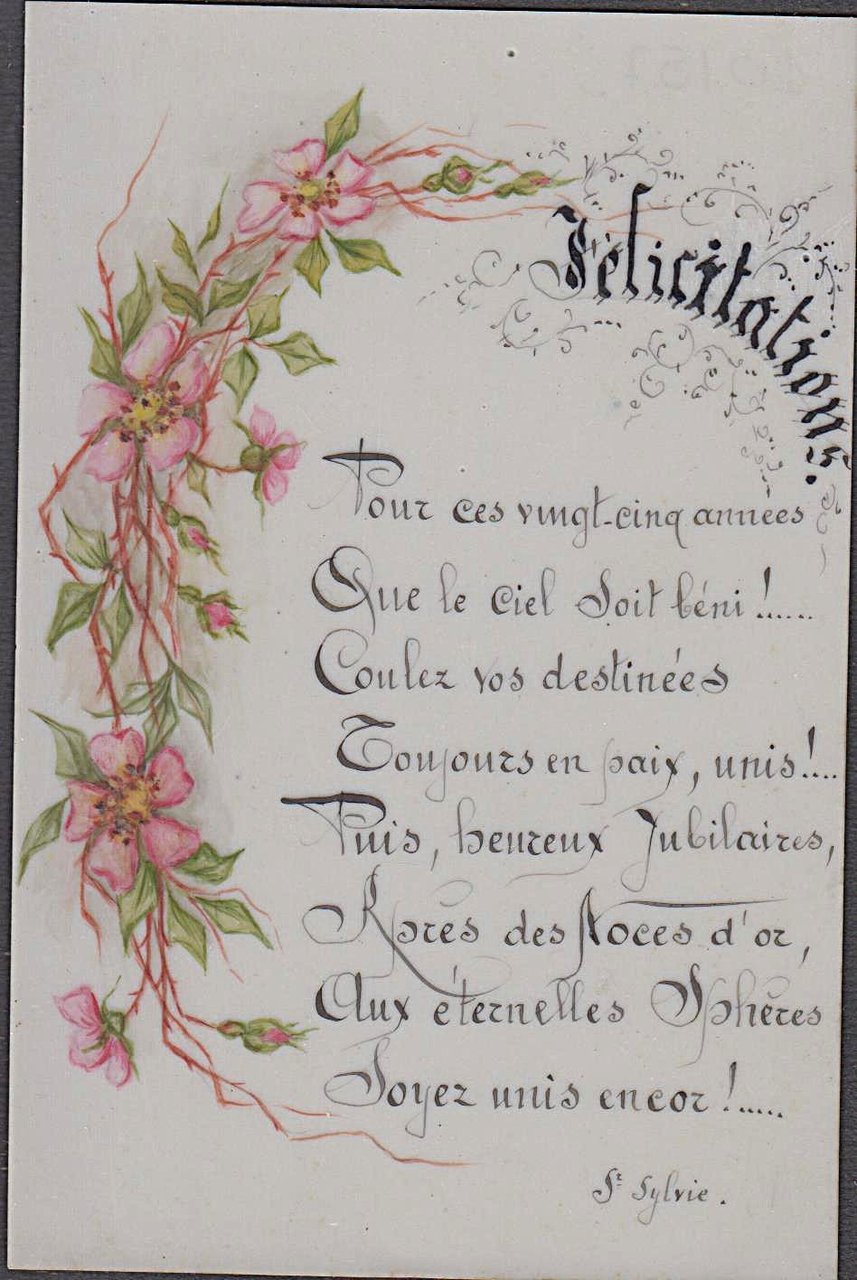 Félicitations.
Pour ces vingt-cinq années
Que le ciel Soit béni !......
Coulez vos destinées
Toujours en paix, unis !...
Puis, heureux Jubilaires,
Après des Noces d'or,
Aux éternelles Sphères
Soyez unis encor !.....
Sr Sylvie.